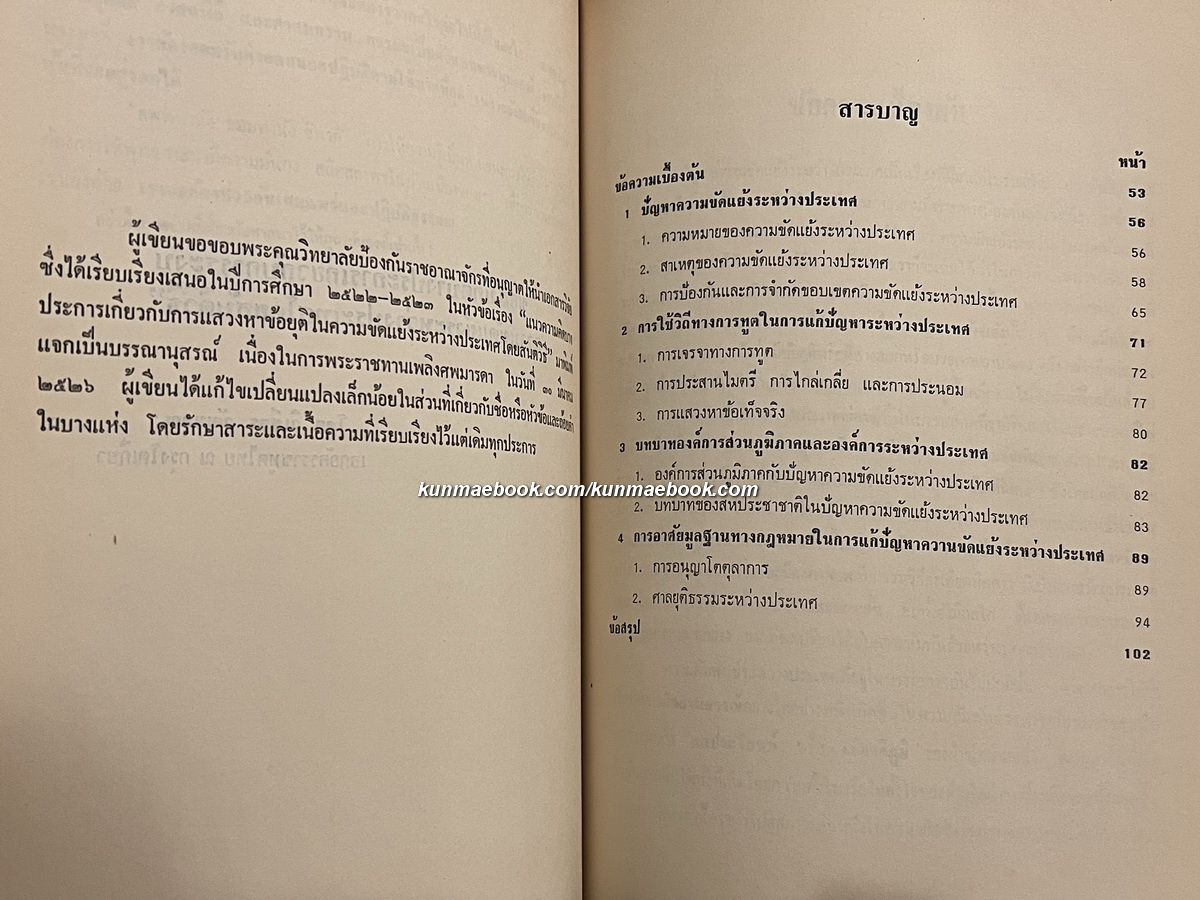 ผู้เขียนขอขอบพระคุณวิทยาลัยป้องกันราชอาณาจักรที่อนุญาตให้นำเอกสารวิจัย
ซึ่งได้เรียบเรียงเสนอในปีการศึกษา ๒๕๒๒–๒๕๒๓ ในหัวข้อเรื่อง “แนวความคิดบาง
ประการเกี่ยวกับการแสวงหาข้อยุติในความขัดแย้งระหว่างประเทศโดยสันติวิธี” มาพิมพ์
แจกเป็นบรรณานุสรณ์ เนื่องในการพระราชทานเพลิงศพมารดา ในวันที่ ๓๐ มีนาคม
๒๕๒๖ ผู้เขียนได้แก้ไขเปลี่ยนแปลงเล็กน้อยในส่วนที่เกี่ยวกับชื่อหรือหัวข้อและถ้อยคำ
ในบางแห่ง โดยรักษาสาระและเนื้อความที่เรียบเรียงไว้แต่เดิมทุกประการ
สารบาญ
หน้า
ข้อความเบื้องต้น 53
1 ปัญหาความขัดแย้งระหว่างประเทศ 56
1. ความหมายของความขัดแย้งระหว่างประเทศ 56
2. สาเหตุของความขัดแย้งระหว่างประเทศ 58
3. การป้องกันและการจำกัดขอบเขตความขัดแย้งระหว่างประเทศ 65
2 การใช้วิถีทางการทูตในการแก้ปัญหาระหว่างประเทศ 71
1. การเจรจาทางการทูต 72
2. การประสานไมตรี การไกล่เกลี่ย และการประนอม 77
3. การแสวงหาข้อเท็จจริง 80
3 บทบาทองค์การส่วนภูมิภาคและองค์การระหว่างประเทศ 82
1. องค์การส่วนภูมิภาคกับปัญหาความขัดแย้งระหว่างประเทศ 82
2. บทบาทของสหประชาชาติในปัญหาความขัดแย้งระหว่างประเทศ 83
4 การอาศัยมูลฐานทางกฎหมายในการแก้ปัญหาควานขัดแย้งระหว่างประเทศ 89
1. การอนุญาโตตุลาการ 89
2. ศาลยุติธรรมระหว่างประเทศ 94
ข้อสรุป 102
kunmaebook.com/kunmaebook.com